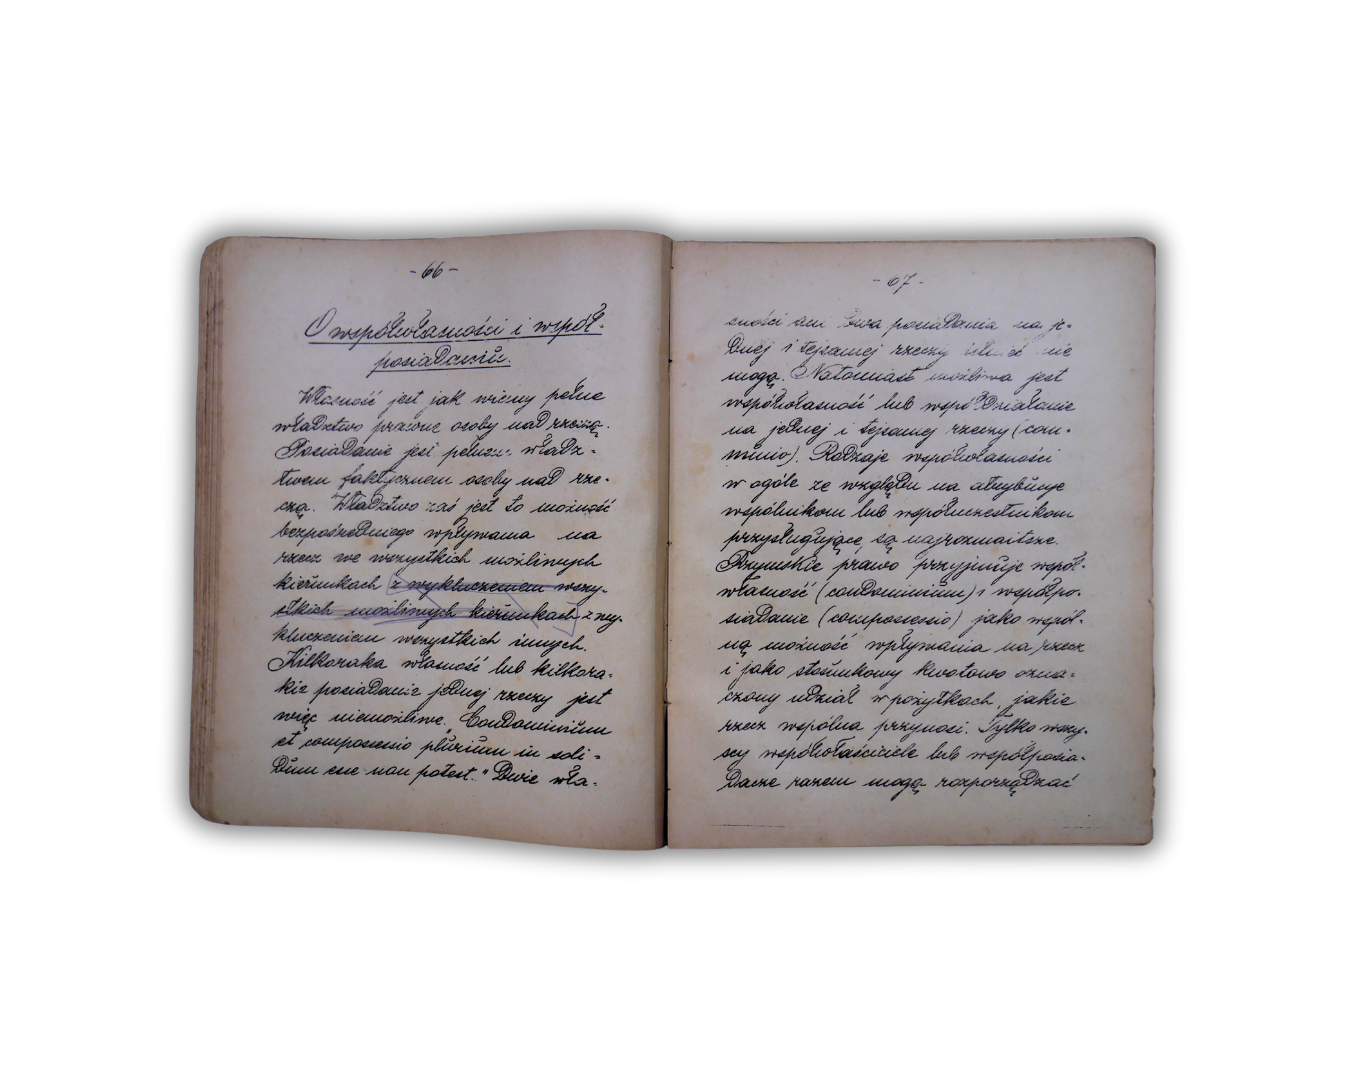 - 66 -
O współwłasności i współ-
posiadaniu.
Własność jest jak wiemy pełne
władztwo prawne osoby nad rzeczą.
Posiadanie jest pełnem władz-
twem faktycznem osoby nad rze-
czą. Władztwo zaś jest to możność
bezpośredniego wpływania na
rzecz we wszystkich możliwych
kierunkach z wykluczeniem wszy-
stkich możliwych kierunkach z wy-
kluczeniem wszystkich innych.
Kilkoraka własność lub kilkora-
kie posiadanie jednej rzeczy jest
więc niemożliwe. "Condominium
et compossessio plurium in soli-
dum esse non potest." Dwie wła-
- 67 -
sności ani dwa posiadania na je-
dnej i tejsamej rzeczy istnieć nie
mogą. Natomiast możliwa jest
współwłasność lub współdziałanie
na jednej i tejsamej rzeczy (com-
munio). Rodzaje współwłasności
w ogóle ze względu na atrybucje
wspólnikom lub współuczestnikom
przysługujące są najrozmaitsze.
Rzymskie prawo przyjmuje współ-
własność (condominium) i współpo-
siadanie (compossessio) jako wspól-
ną możność wpływania na rzecz
i jako stosunkowy kwotowo ozna-
czony udział w pożytkach, jakie
rzecz wspólna przynosi. Tylko wszy-
scy współwłaściciele lub współposia-
dacze razem mogą rozporządzać